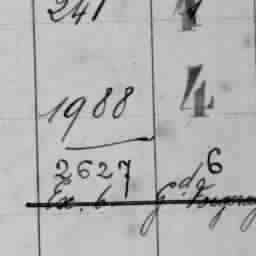 241 4
1988 4
2627 6
Ex. 6 Gd